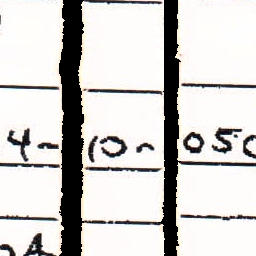 4- 10- 050